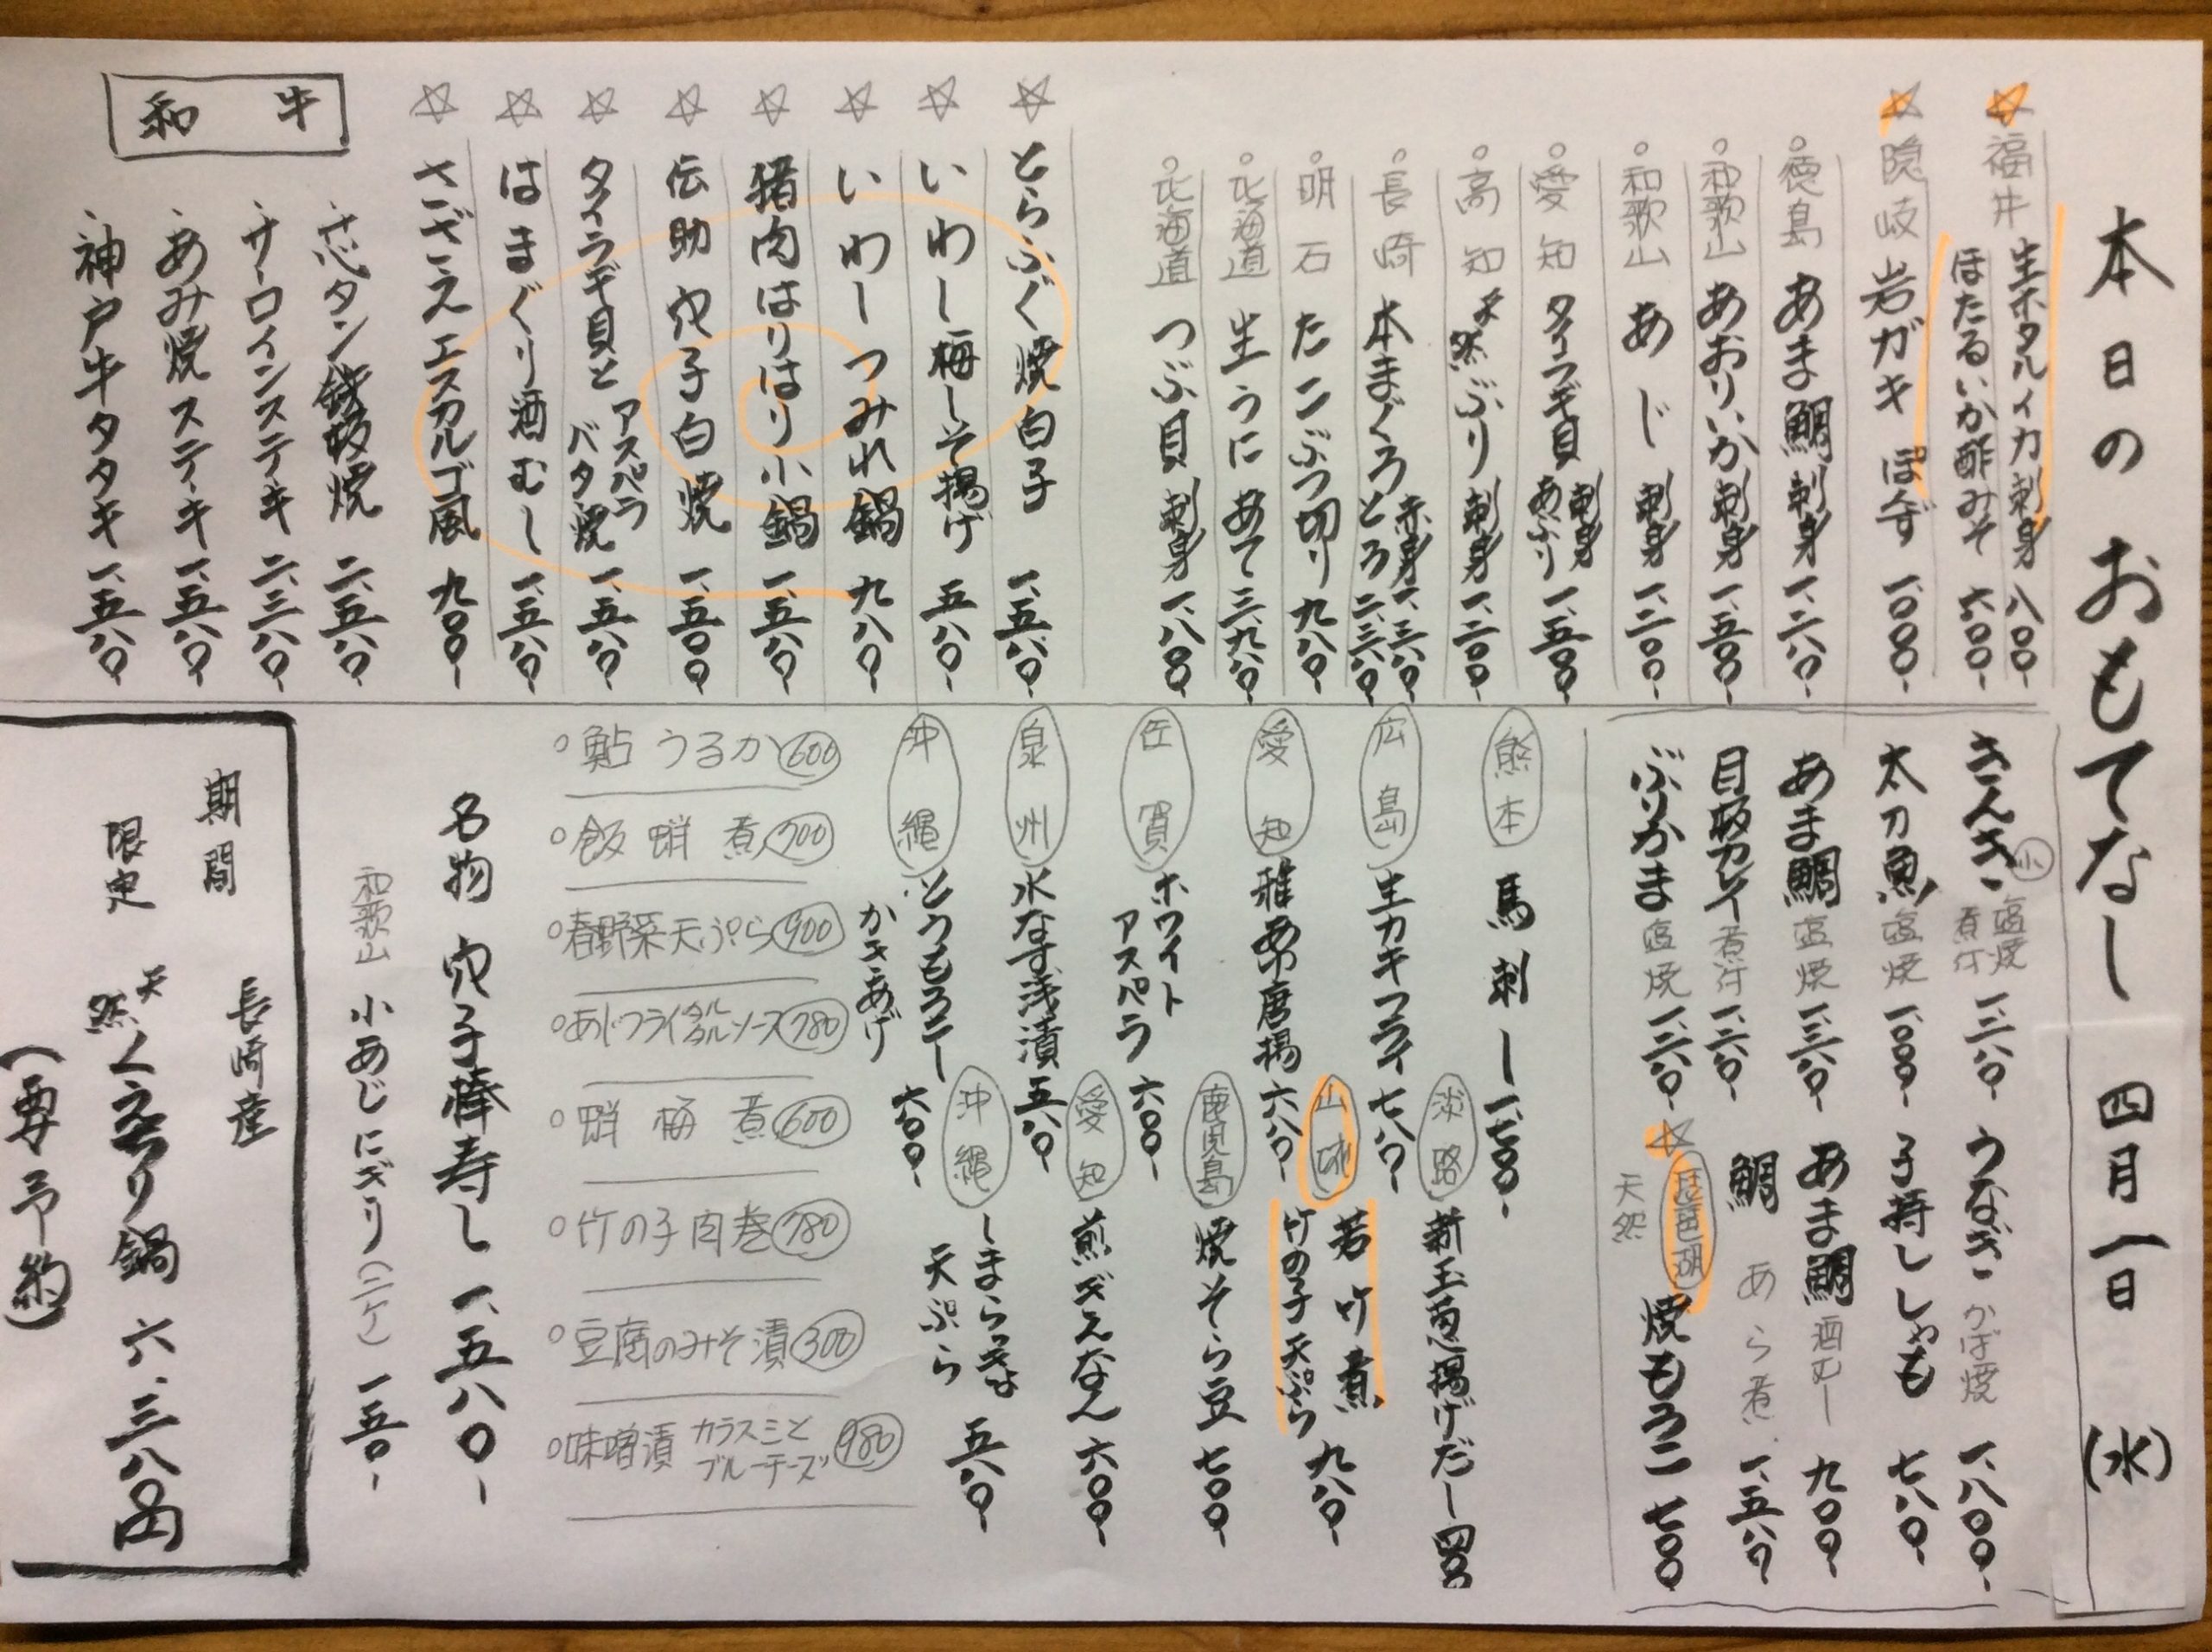 本日のおもてなし 四月一日(水)
☆福井 生ホタルイカ刺身 八〇〇-
ほたるいか酢みそ 六〇〇-
☆隠岐 岩ガキ ぽんず 一、〇〇〇-
徳島 あま鯛 刺身 一、二八〇-
和歌山 あおりいか 刺身 一、五〇〇-
和歌山 あじ 刺身 一、二〇〇-
愛知 タイラギ貝 刺身 あぶり 一、五〇〇-
高知 天然ぶり 刺身 一、二〇〇-
長崎 本まぐろ 赤身 一、三八〇-
とろ 二、三八〇-
明石 たこぶつ切り 九八〇-
北海道 生うに あて 三、九八〇-
北海道 つぶ貝 刺身 一、八〇〇-
☆とらふぐ焼白子 一、五八〇-
☆いわし梅しそ揚げ 五八〇-
☆いわしつみれ鍋 九八〇-
☆猪肉はりはり小鍋 一、五八〇-
☆伝助穴子白焼 一、五〇〇-
☆タイラギ貝とアスパラバタ焼 一、五八〇-
☆はまぐり酒むし 一、五八〇-
☆さざえエスカルゴ風 九〇〇-
和牛
芯タン鉄板焼 二、五八〇-
サーロインステーキ 二、三八〇-
あみ焼ステーキ 一、五八〇-
神戸牛タタキ 一、五八〇-
きんき 小 塩焼 煮汁
太刀魚 塩焼 一、〇〇〇-
あま鯛 塩焼 一、三八〇-
目板カレイ 煮汁
ぶりかま 塩焼
うなぎ かば焼 一、八〇〇-
子持ししゃも 七八〇-
あま鯛 酒むし 九〇〇-
鯛 あら煮 一、五八〇
☆琵琶湖 天然 焼もろこ 七〇〇
熊本 馬刺し 一、七〇〇-
広島 生カキフライ 七八〇-
愛知 稚あゆ唐揚 六八〇-
佐賀 ホワイトアスパラ 六〇〇-
泉州 水なす浅漬 五八〇-
沖縄 とうもろこしかきあげ 六〇〇-
淡路 新玉葱揚げだし
山城 若竹煮
竹の子天ぷら 九八〇-
鹿児島 焼そら豆 七〇〇-
愛知 煎ぎんなん 六〇〇-
沖縄 しまらっきょ天ぷら 五八〇-
鮎うるか 600
飯蛸煮 700
春野菜天ぷら 900
あじフライタルタルソース 780
蛸梅煮 600
竹の子肉巻 780
豆腐のみそ漬 300
味噌漬 カラスミとブルーチーズ 980
名物 穴子棒寿し 一、五八〇-
和歌山 小あじにぎり(二ケ) 一五〇-
期間限定
長崎産
天然くえちり鍋 六、三八〇円
(要予約)